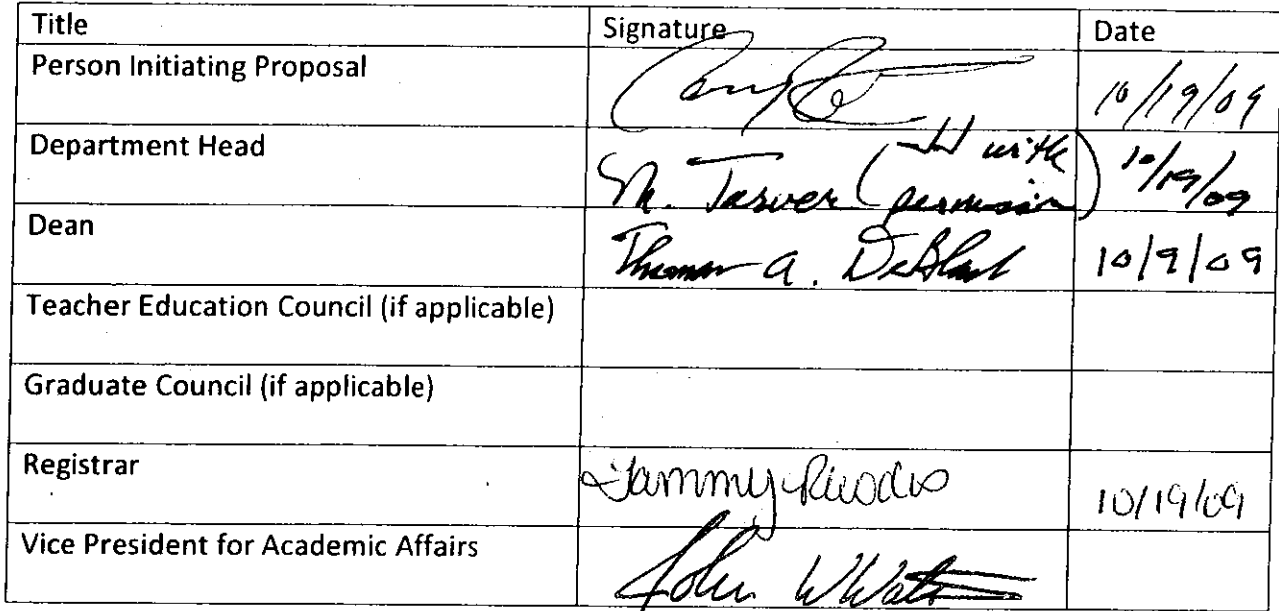 Title Signature Date
Person Initiating Proposal 10/19/09
Department Head M. Tarver ( with permission) 10/19/09
Dean Thomas A. DeBlack 10/9/09
Teacher Education Council (if applicable)
Graduate Council (if applicable)
Registrar Tammy Rhodes 10/19/09
Vice President for Academic Affairs John W Watson